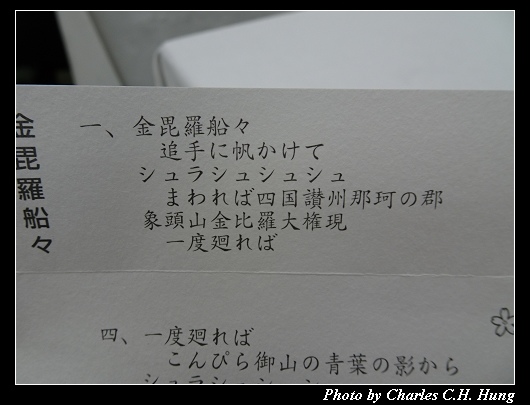 金毘羅船々
一、金毘羅船々
追手に帆かけて
シュラシュシュシュ
まわれば四国讃州那珂の郡
象頭山金比羅大権現
一度廻れば
四、一度廻れば
こんぴら御山の青葉の影から
シュラシュシュシュ
Photo by Charles C.H. Hung